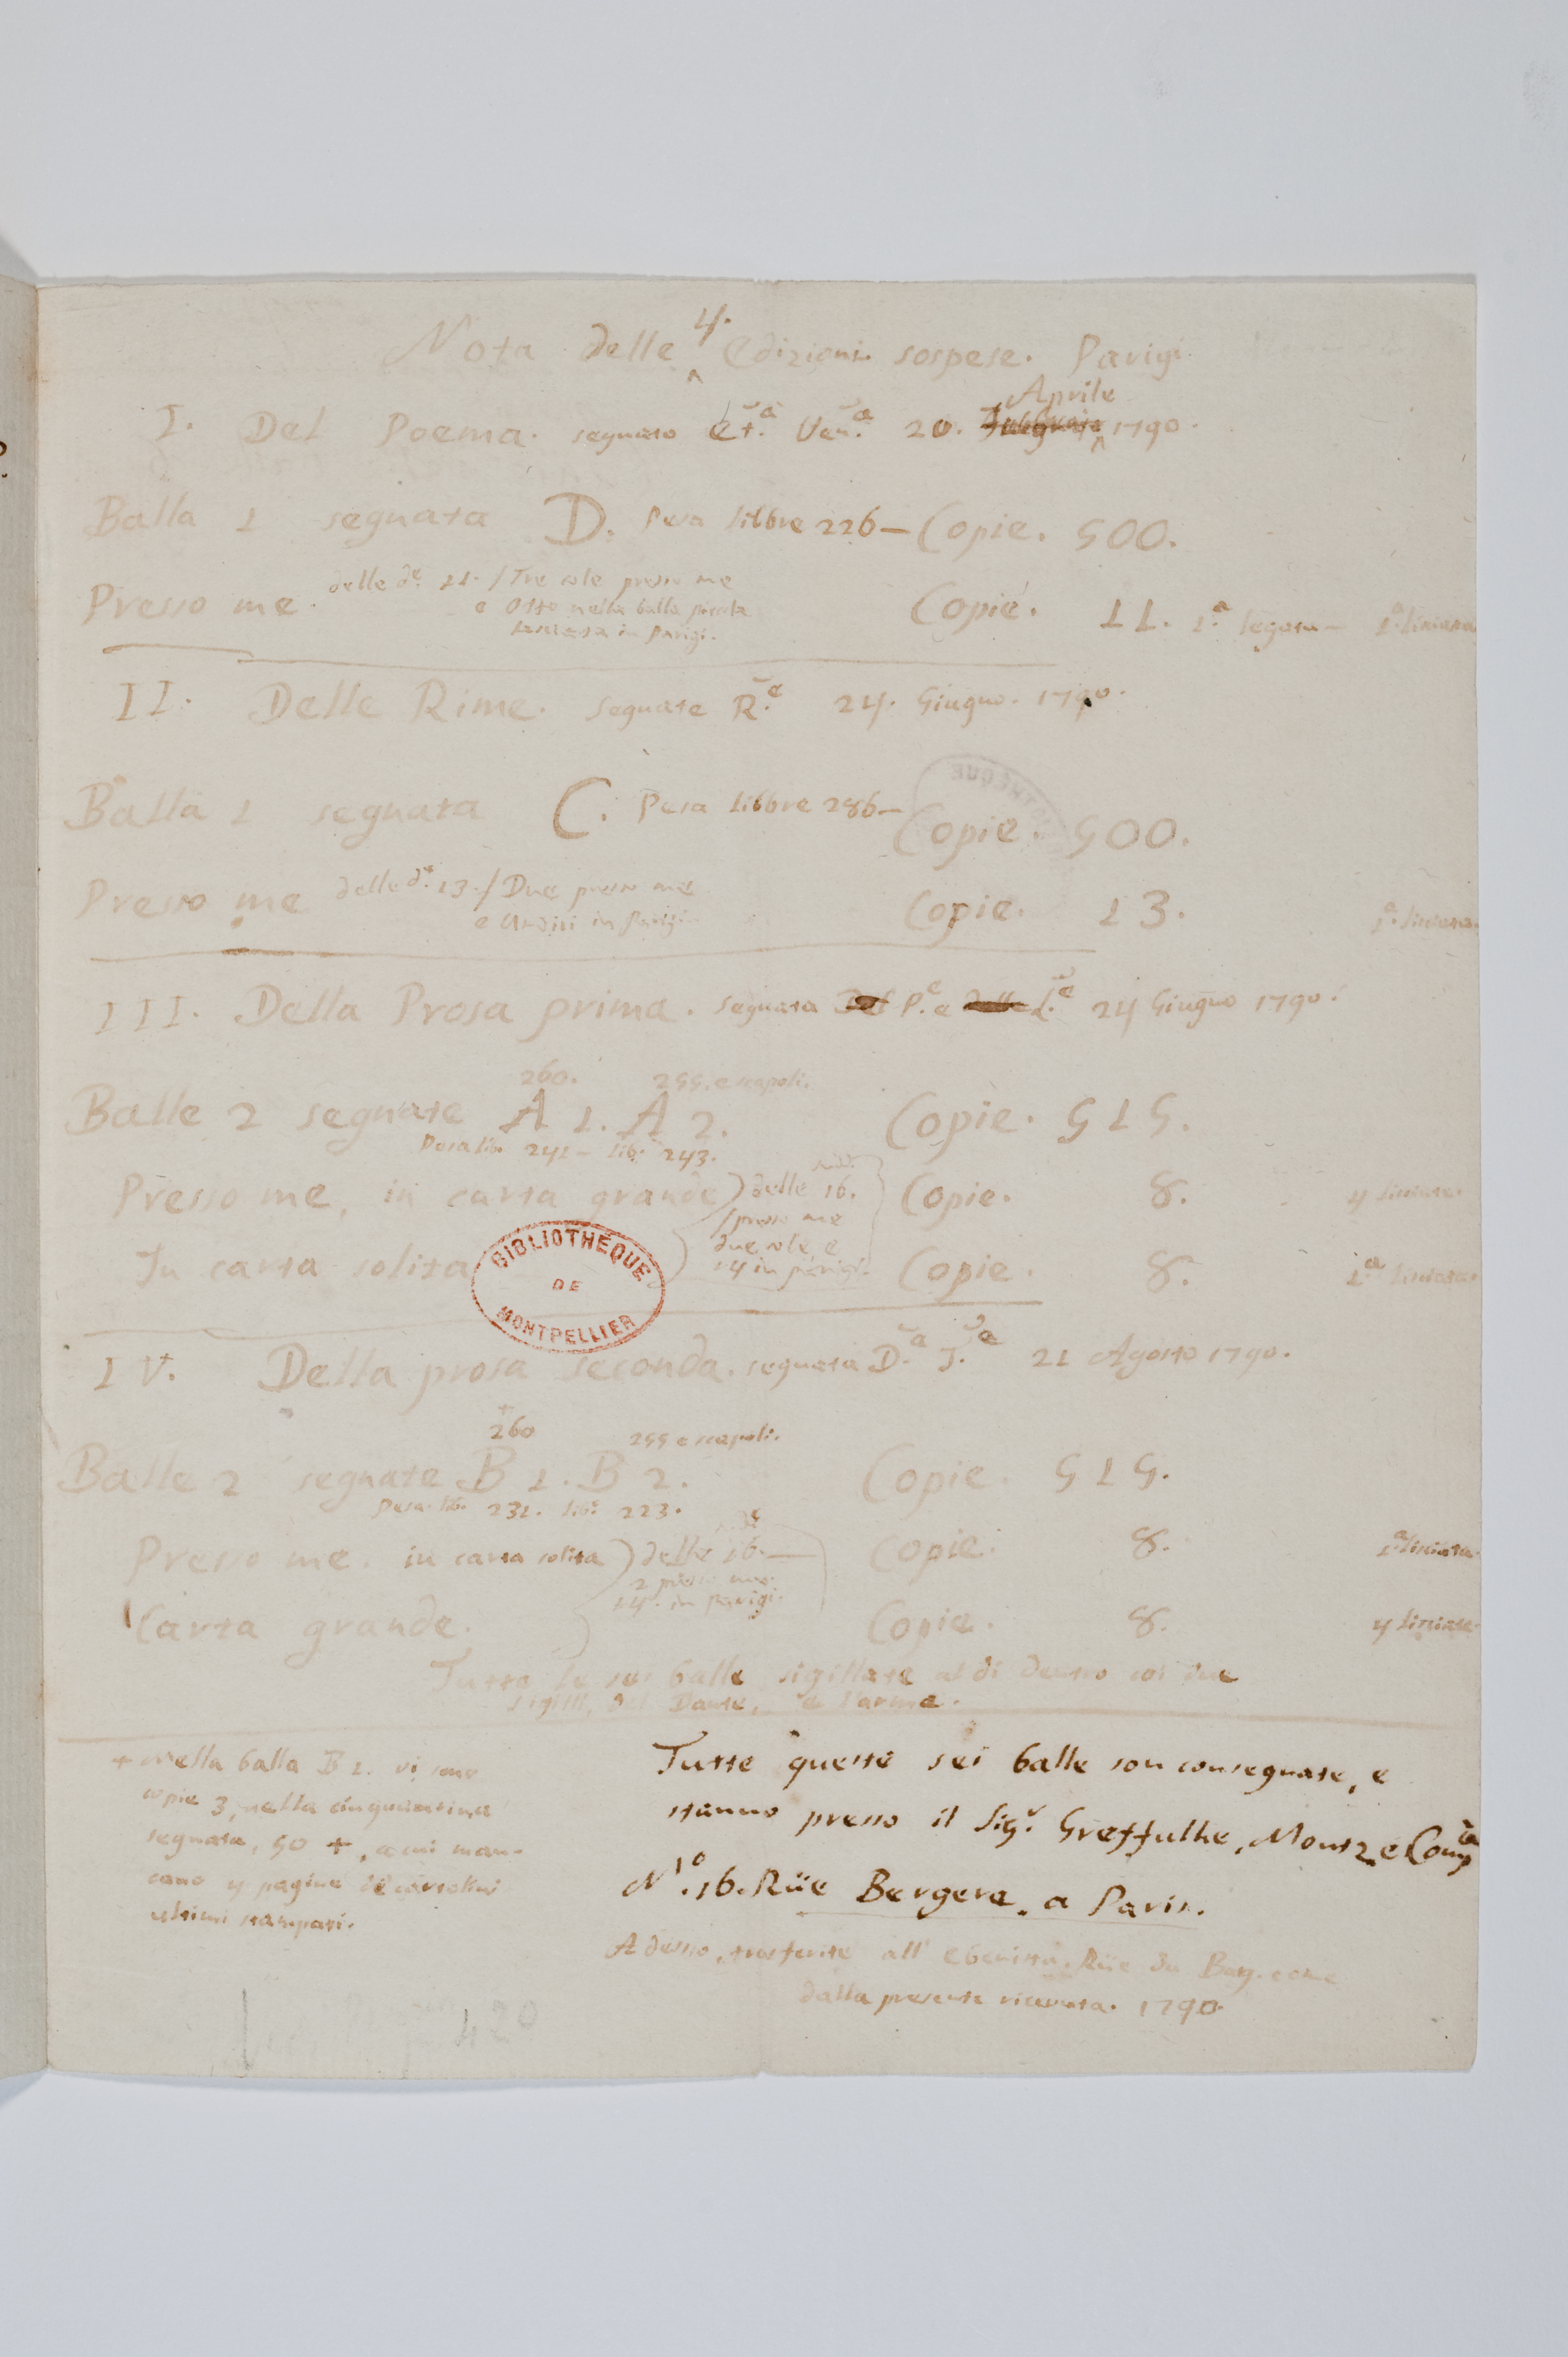 Nota delle 4. Edizioni sospese. Parigi
I. Del Poema. segnato Et.a Ven.a 20. Aprile 1790.
Balla 1 segnata D. Pesa libbre 226 – Copie. 500.
Presso me. delle d.e 11. / Tre sole presso me
e Otto nella balla piccola
lasciata in Parigi.
Copie. 11. 1.a legata – 1.a liniata
II. Delle Rime. segnate R.e 24. Giugno. 1790.
Balla 1 segnata C. Pesa libbre 286 – Copie. 500.
Presso me delle d.e 13. / Due presso me
e Undici in Parigi.
Copie. 13. 1.a liniata.
III. Della Prosa prima. segnata P.e e L.e 24 Giugno 1790.
260. 255. e scapoli.
Balle 2 segnate A 1. A 2. Copie. 515.
Pesa lib. 241 – lib. 243.
Presso me, in carta grande) delle 16. Copie. 8. 4 liniate.
/ presso me
due sole e
14 in parigi.
In carta solita Copie. 8. 1.a liniata.
BIBLIOTHÈQUE
DE
MONTPELLIER
IV. Della prosa seconda. segnata D.a T.e 21 Agosto 1790.
+
260 255 e scapoli.
Balle 2 segnate B 1. B 2. Copie. 515.
Pesa. lib. 231. lib. 223.
Presso me. in carta solita) delle 16. — Copie. 8. 1.a liniata.
2 presso me.
14. in parigi.
Carta grande. Copie. 8. 4 liniate.
Tutte le sei balle sigillate al di dentro coi due
sigilli, del Dante, e l'arme.
+ Nella balla B 1. vi sono
copie 3, nella cinquantina
segnata, 50 +, a cui man-
cano 4 pagine
ultimi stampati.
Tutte queste sei balle son consegnate, e
stanno presso il Sig.r Greffulhe, Montz e Comp.a
N.o 16. Rüe Bergere. a Paris.
Adesso, trasferite all' Ebenista, Rüe du Bacq. come
dalla presente ricevuta. 1790.